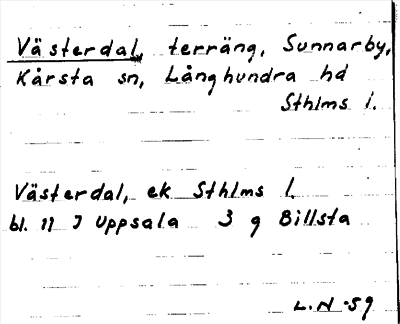 Västerdal, terräng, Sunnarby,
Kårsta sn, Långhundra hd
Sthlms l.
Västerdal, ek Sthlms l.
bl. 11 J Uppsala 3 g Billsta
L.N -59